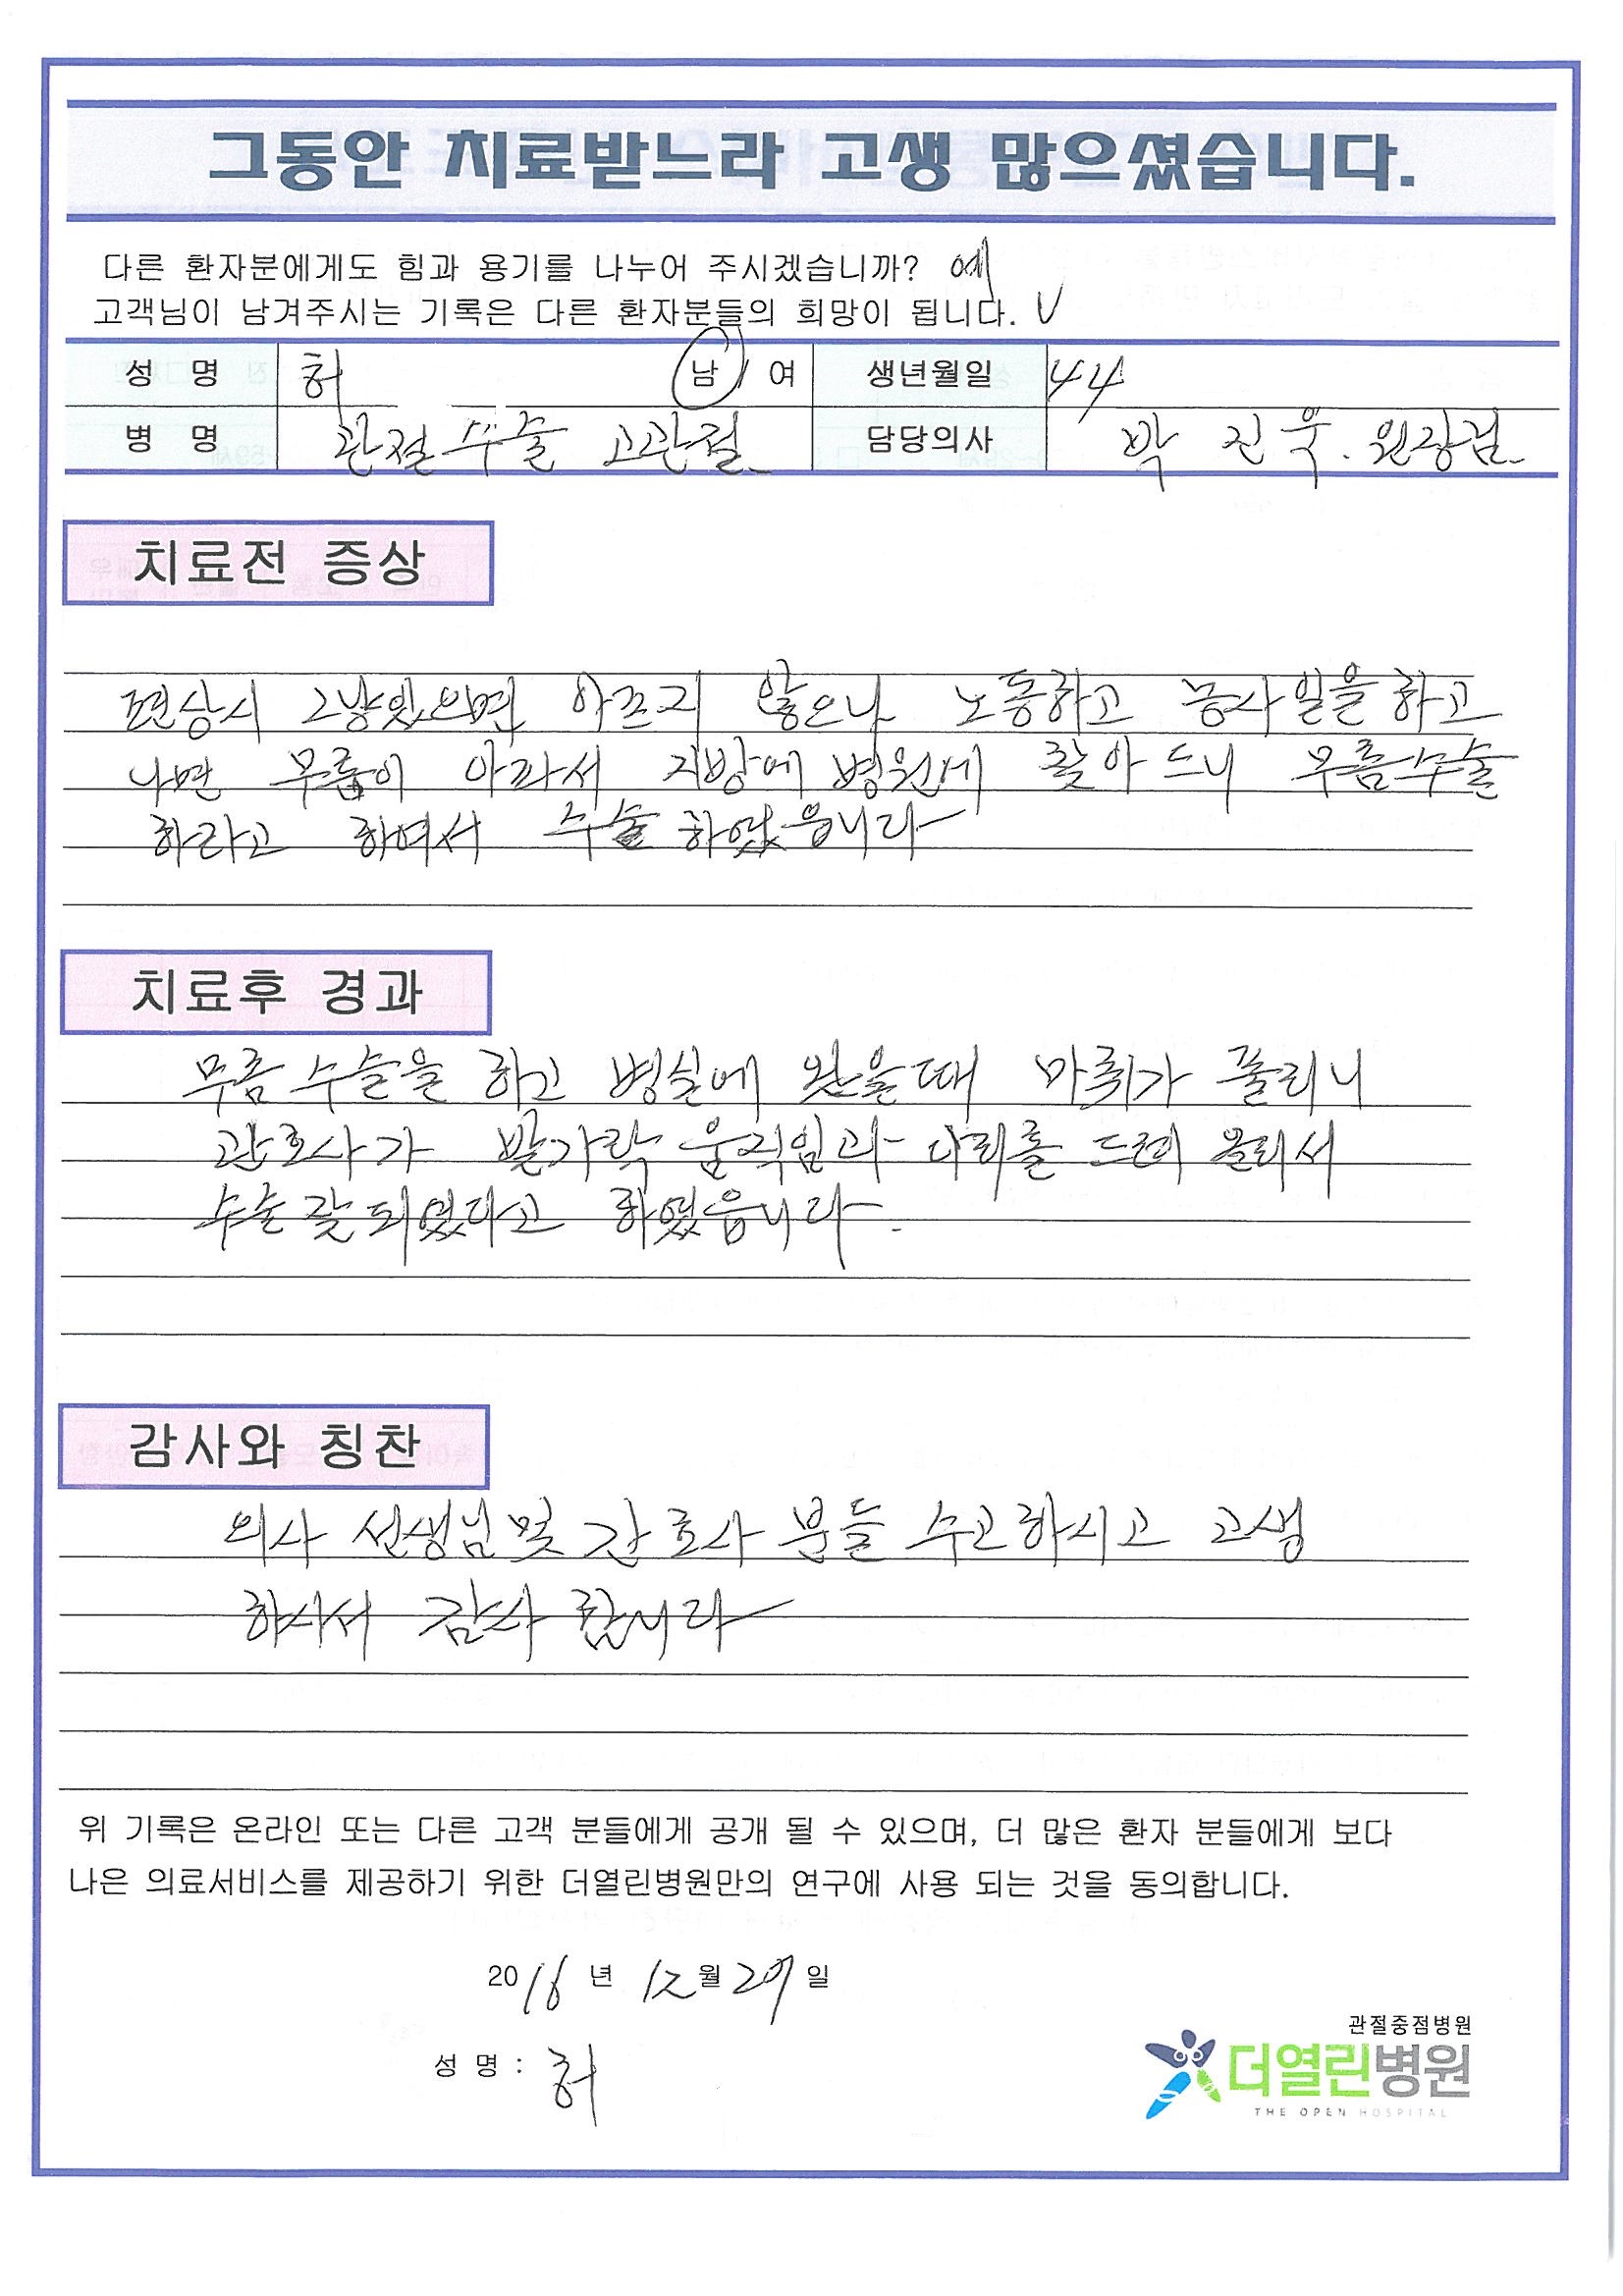 그동안 치료받느라 고생 많으셨습니다.
다른 환자분에게도 힘과 용기를 나누어 주시겠습니까? 예
고객님이 남겨주시는 기록은 다른 환자분들의 희망이 됩니다. V
성 명 허 남 / 여 생년월일 44
병 명 관절 수술 고관절 담당의사 박 진욱. 원장님
치료전 증상
편상시 그냥있으면 아프지 않으나 노동하고 농사일을 하고
나면 무릎이 아파서 지방에 병원에 찾아 드니 무릎수술
하라고 하여서 수술 하였읍니다
치료후 경과
무릎수술을 하고 병실에 왔을때 마취가 풀리니
간호사가 발가락 움직임과 다리를 드러 올려서
수술 잘 되였다고 하였읍니다.
감사와 칭찬
의사 선생님 및 간호사 분들 수고하시고 고생
하사서 감사 합니다
위 기록은 온라인 또는 다른 고객 분들에게 공개 될 수 있으며, 더 많은 환자 분들에게 보다
나은 의료서비스를 제공하기 위한 더열린병원만의 연구에 사용 되는 것을 동의합니다.
2016 년 12 월 29 일
성 명 : 허
관절중점병원
더열린병원
THE OPEN HOSPITAL